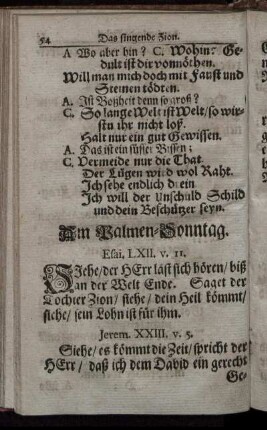 54 Das singende Zion.
A Wo aber hin? C. Wohin? Ge-
dult ist dir vonnöthen.
Will man mich doch mit Faust und
Steinen tödten.
A. Ist Boßheit denn so groß?
C. So lange Welt ist Welt / so wir-
stu ihr nicht loß.
Halt nur ein gut Gewissen.
A. Das ist ein süsser Bissen;
C. Vermeide nur die That
Der Lügen wird wol Raht.
Ich sehe endlich drein
Ich will der Unschuld Schild
und dein Beschützer seyn.
Am Palmen-Sonntag.
Esai. LXII. v. 11.
Siehe / der HErr läst sich hören / biß
an der Welt Ende. Saget der
Tochter Zion / siehe / dein Heil kömmt /
siehe / sein Lohn ist für ihm.
Jerem. XXIII. v. 5.
Siehe / es kömmt die Zeit / spricht der
HErr / daß ich dem David ein gerecht
Ge-